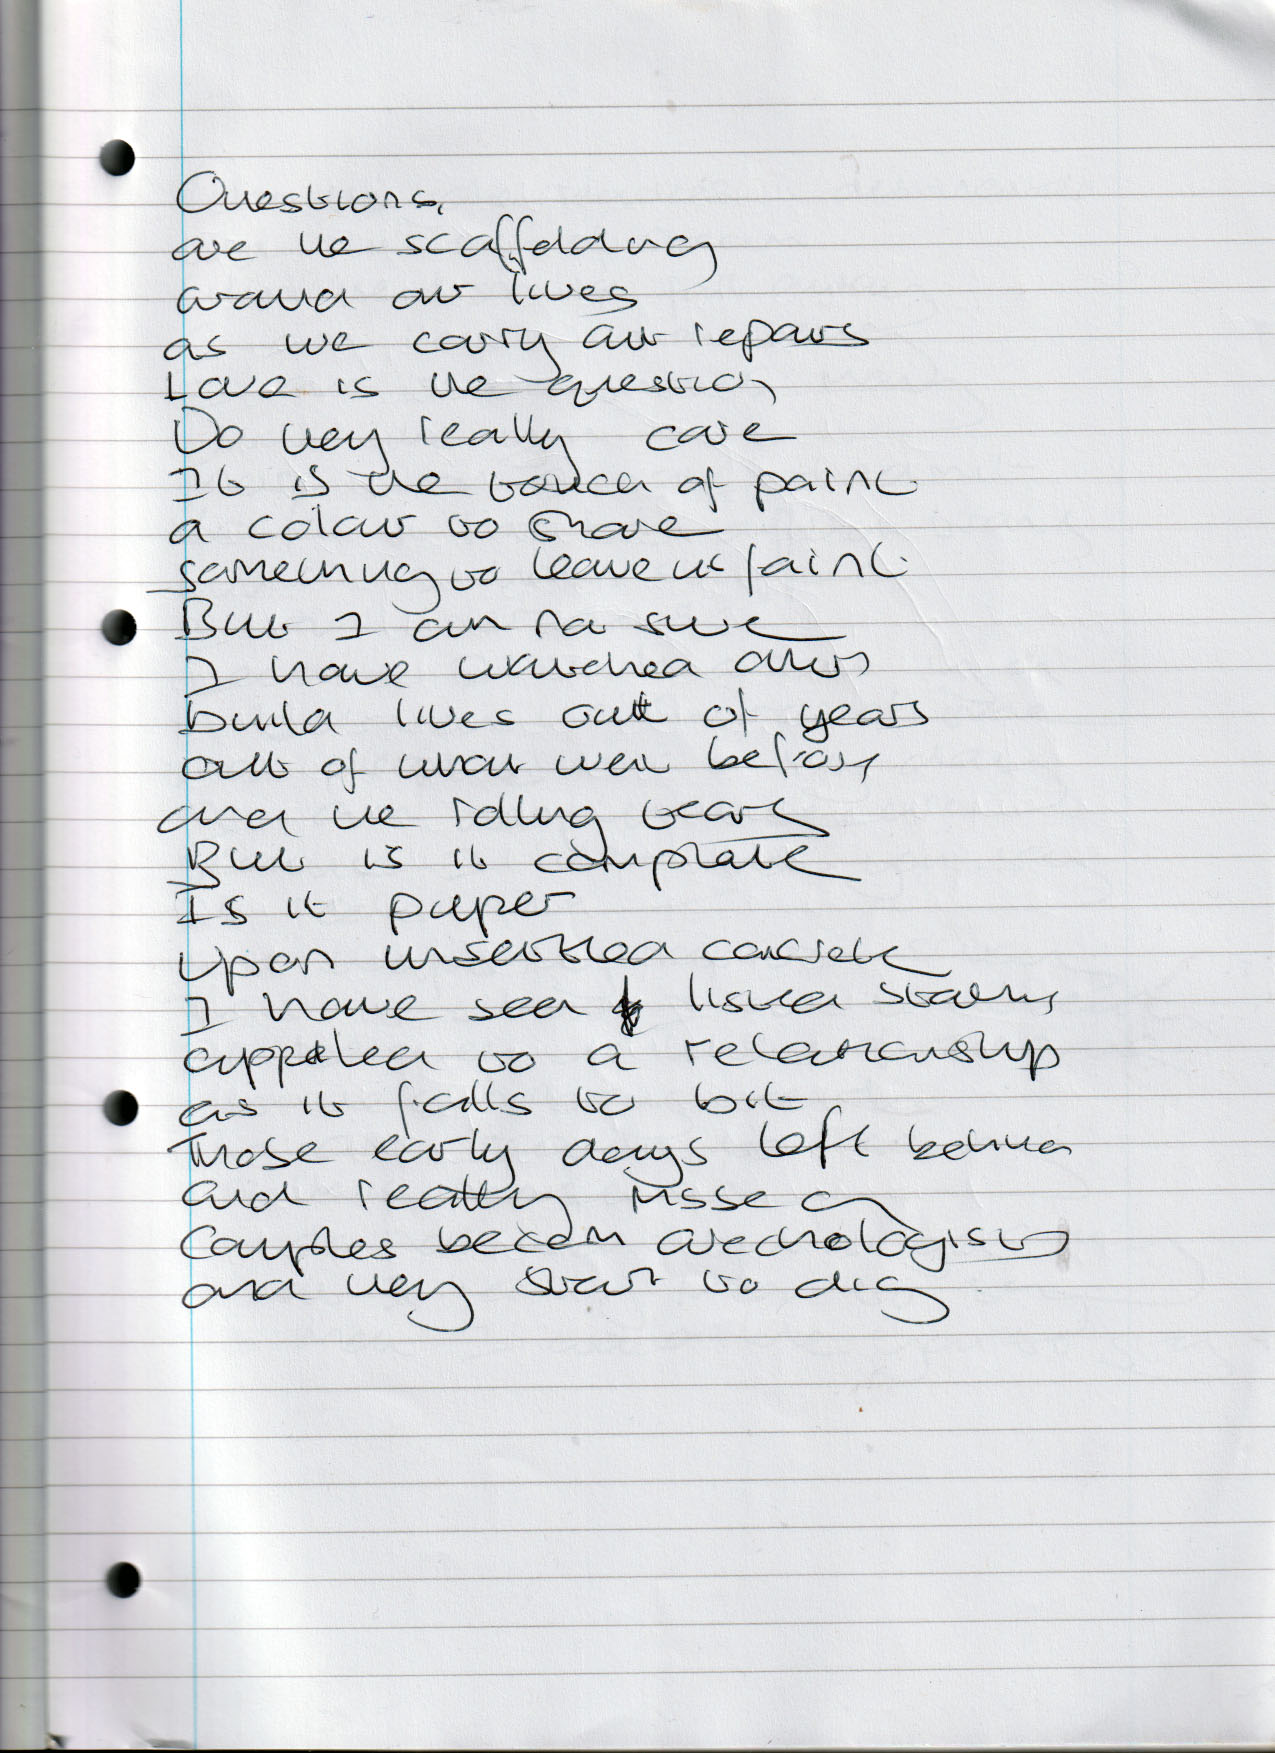 Questions,
are the scaffolding
around our lives
as we carry out repairs
Love is the question
Do they really care
It is the touch of paint
a colour to share
something to leave us faint.
But I am not sure
I have watched
build lives out of years
out of what went before
and the rolling tears
But is it complete
Is it paper
upon unsettled concrete
I have seen listed
applied to a relationship
as it falls to bit
Those early days left behind
and really
Couples become archeologists
and they start to dig